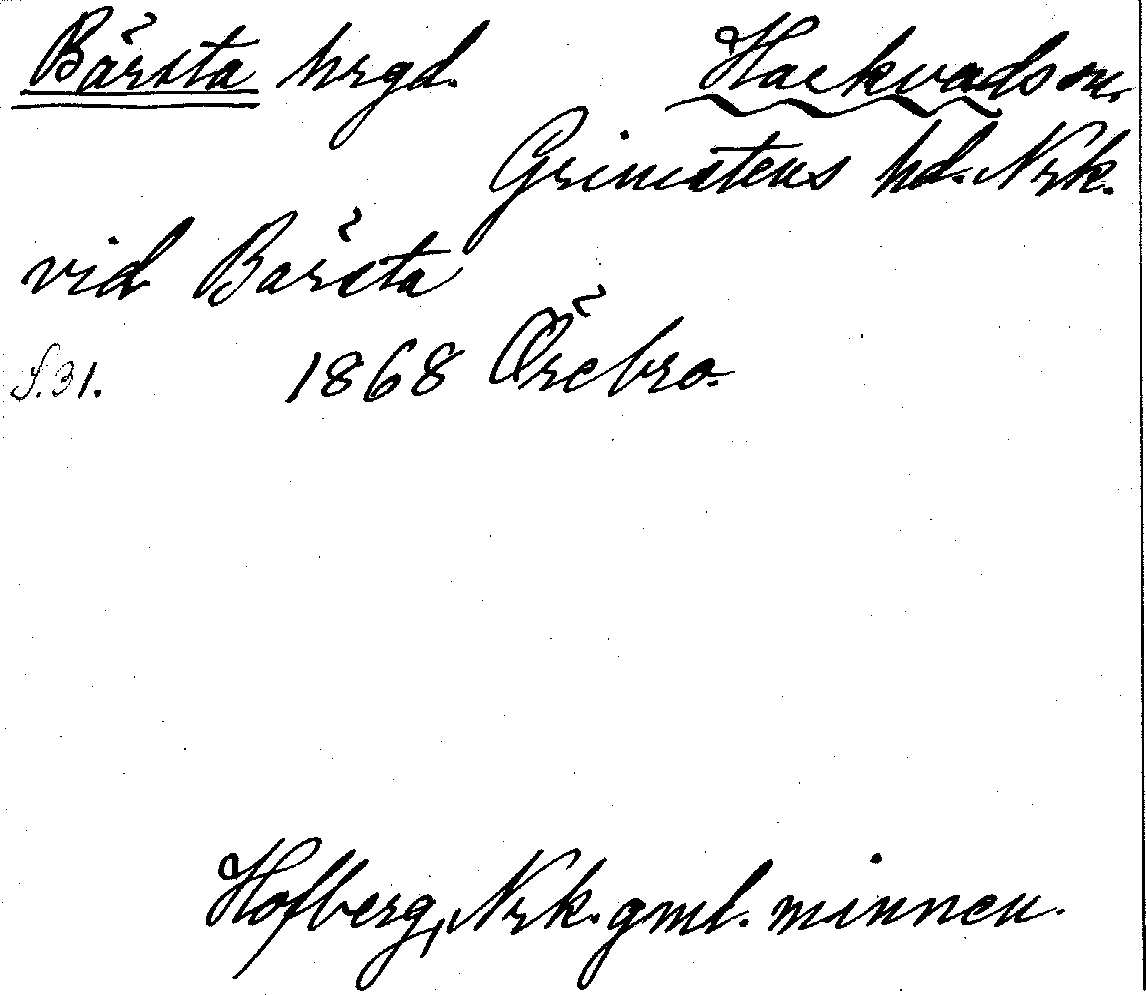 Bärsta hrgd. Hackvads sn.
Grimstens hd. Nrk.
vid Bärsta
S. 31. 1868 Örebro.
Hofberg, Nrk. gml. minnen.